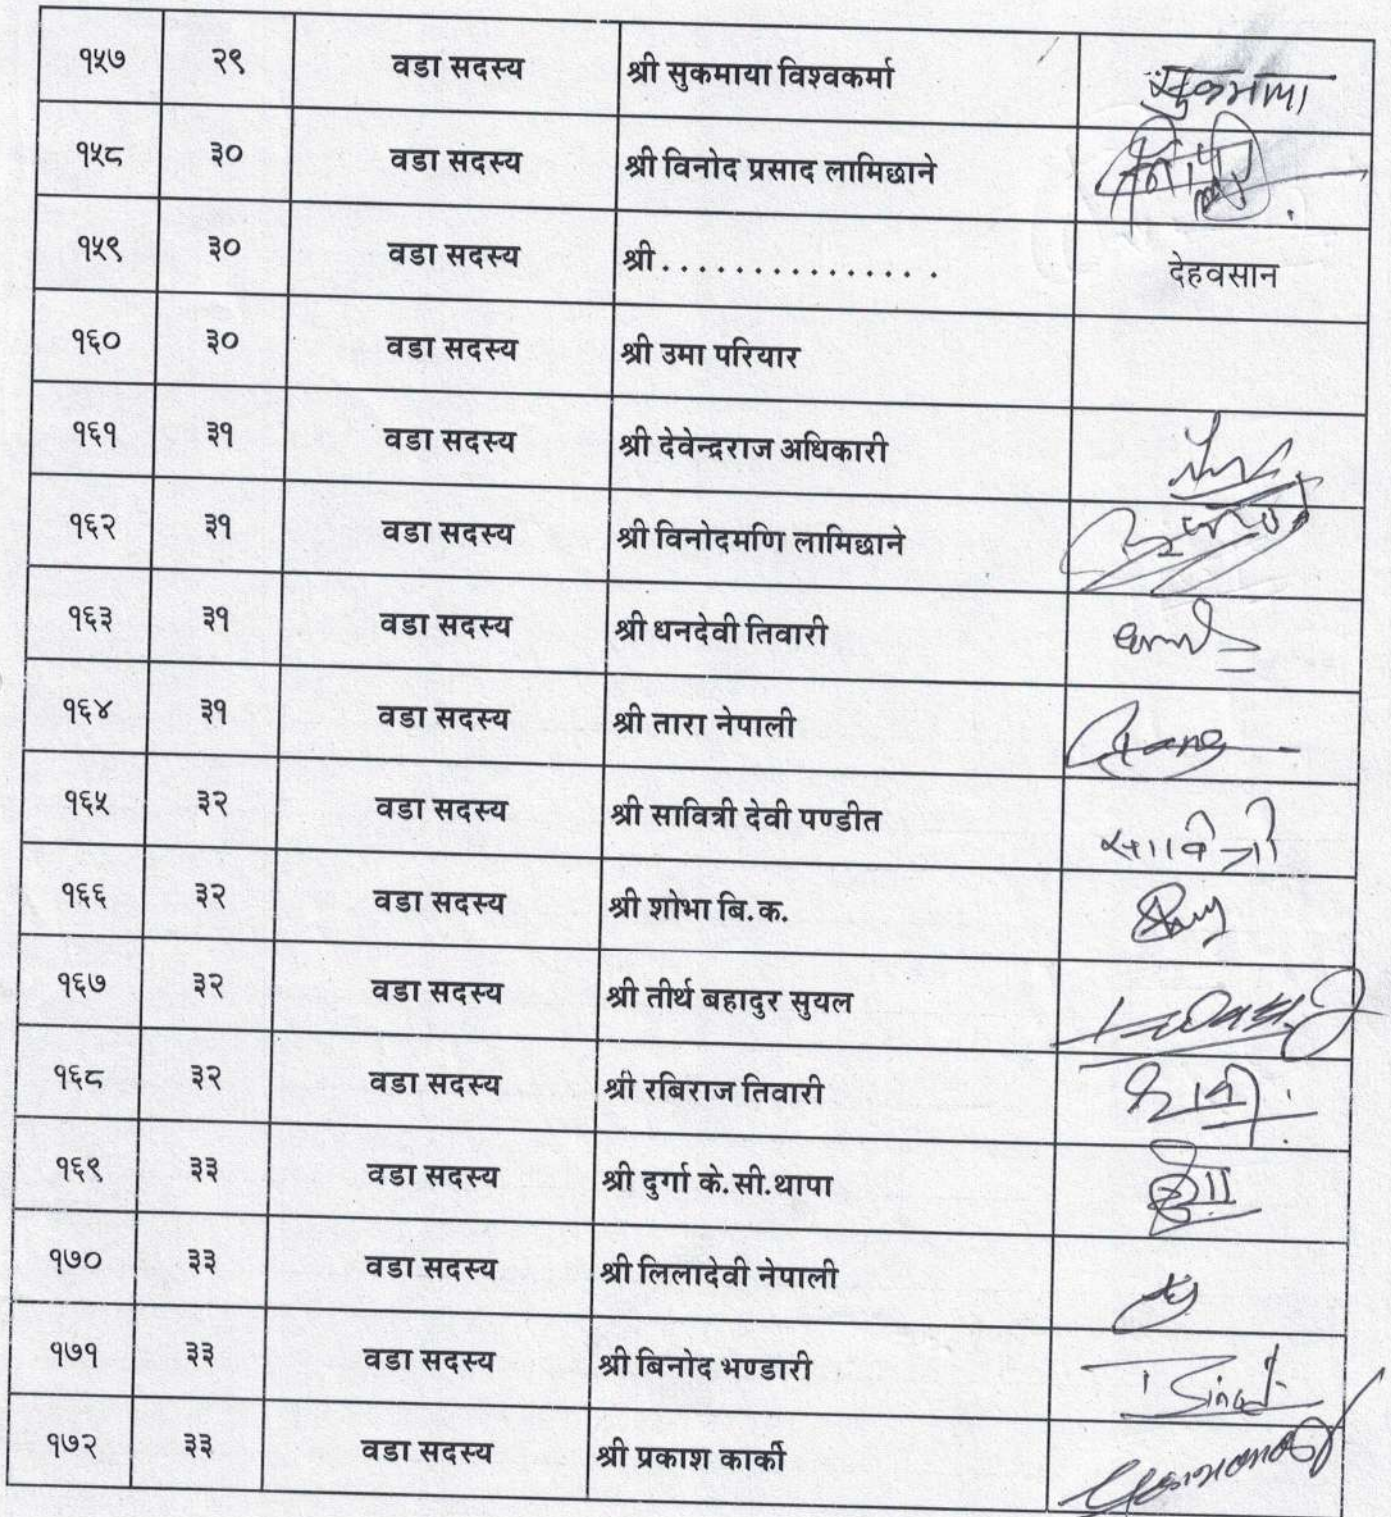 १५७ २९ वडा सदस्य श्री सुकमाया विश्वकर्मा सुकमाया
१५८ ३० वडा सदस्य श्री विनोद प्रसाद लामिछाने
१५९ ३० वडा सदस्य श्री............... देहवसान
१६० ३० वडा सदस्य श्री उमा परियार
१६१ ३१ वडा सदस्य श्री देवेन्द्रराज अधिकारी
१६२ ३१ वडा सदस्य श्री विनोदमणि लामिछाने
१६३ ३१ वडा सदस्य श्री धनदेवी तिवारी
१६४ ३१ वडा सदस्य श्री तारा नेपाली
१६५ ३२ वडा सदस्य श्री सावित्री देवी पण्डीत सावित्री
१६६ ३२ वडा सदस्य श्री शोभा बि.क.
१६७ ३२ वडा सदस्य श्री तीर्थ बहादुर सुयल
१६८ ३२ वडा सदस्य श्री रबिराज तिवारी
१६९ ३३ वडा सदस्य श्री दुर्गा के.सी.थापा
१७० ३३ वडा सदस्य श्री लिलादेवी नेपाली
१७१ ३३ वडा सदस्य श्री बिनोद भण्डारी
१७२ ३३ वडा सदस्य श्री प्रकाश कार्की